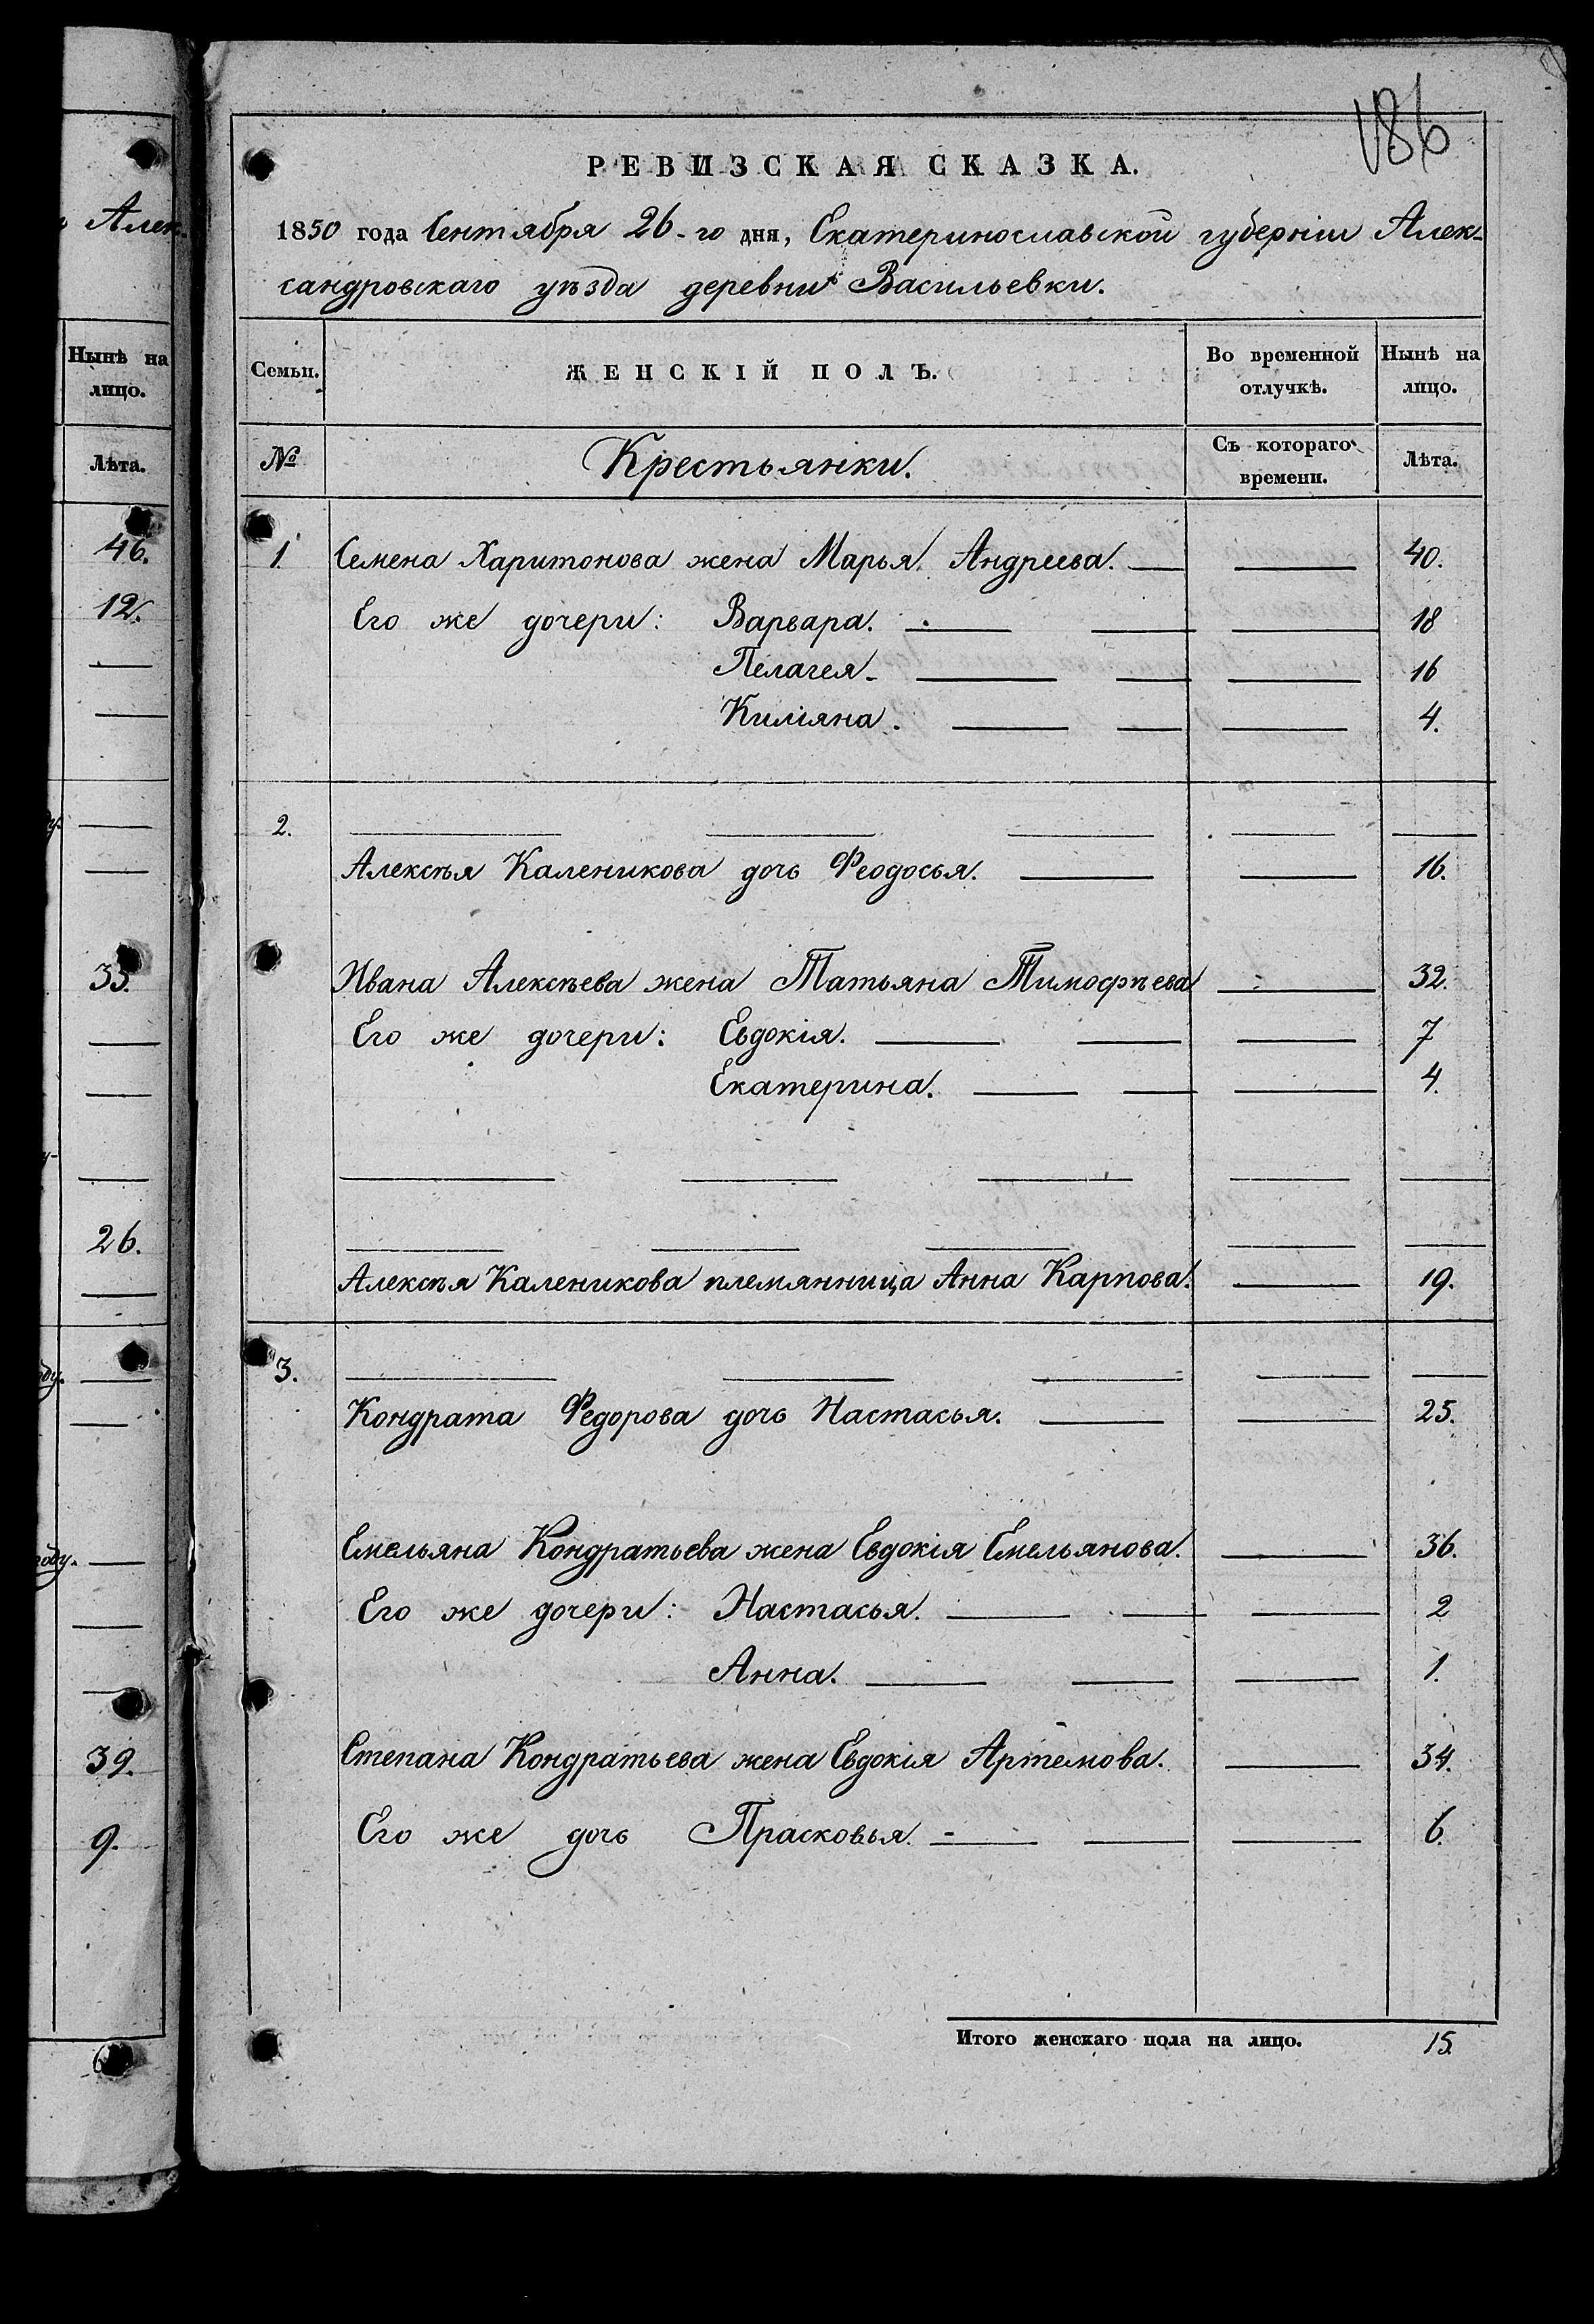 Алек-
Нынѣ на
лицо.
Лѣта.
46.
12.
33.
26.
39.
9.
186
РЕВИЗСКАЯ СКАЗКА.
1850 года Сентября 26-го дня, Екатеринославской губерніи Алек-
сандровскаго уѣзда деревни Васильевки.
Семьи. ЖЕНСКІЙ ПОЛЪ. Во временной отлучкѣ. Нынѣ на лицо.
№ Крестьянки. Съ котораго времени. Лѣта.
1. Семена Харитонова жена Марья Андреева. 40.
Его же дочери: Варвара. 18
Пелагея. 16
Киліяна. 4.
2.
Алексѣя Каленикова дочь Феодосья. 16.
Ивана Алексѣева жена Татьяна Тимофѣева 32.
Его же дочери: Евдокія. 7
Екатерина. 4.
Алексѣя Каленикова племянница Анна Карпова. 19.
3.
Кондрата Федорова дочь Настасья. 25.
Емельяна Кондратьева жена Евдокія Емельянова. 36.
Его же дочери: Настасья. 2
Анна. 1.
Степана Кондратьева жена Евдокія Артемова. 34.
Его же дочь Прасковья. 6.
Итого женскаго пола на лицо. 15.